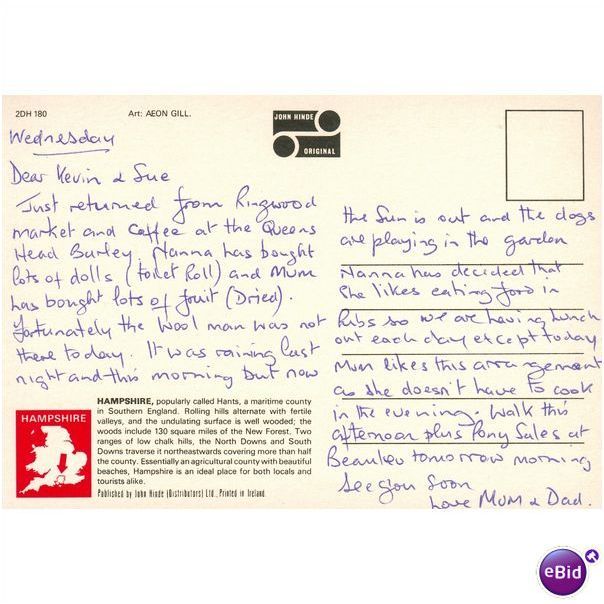 2DH 180
Art: AEON GILL.
JOHN HINDE
ORIGINAL
Wednesday
Dear Kevin & Sue
Just returned from Ringwood
market and Coffee at the Queens
Head Burley. Nanna has bought
lots of dolls (toilet Roll) and Mum
has bought lots of fruit (Dried).
fortunately the wool man was not
there today. It was raining last
night and this morning but now
the Sun is out and the dogs
are playing in the garden
Nanna has decided that
she likes eating food in
Pubs so we are having lunch
out each day except today
Mum likes this arrangement
as she doesn't have to cook
in the evening. Walk this
afternoon plus Pony Sales at
Beaulieu tomorrow morning
See you Soon
Love MUM & Dad.
HAMPSHIRE
HAMPSHIRE, popularly called Hants, a maritime county
in Southern England. Rolling hills alternate with fertile
valleys, and the undulating surface is well wooded; the
woods include 130 square miles of the New Forest. Two
ranges of low chalk hills, the North Downs and South
Downs traverse it northeastwards covering more than half
the county. Essentially an agricultural county with beautiful
beaches, Hampshire is an ideal place for both locals and
tourists alike.
Published by John Hinde (Distributors) Ltd., Printed in Ireland.
eBid